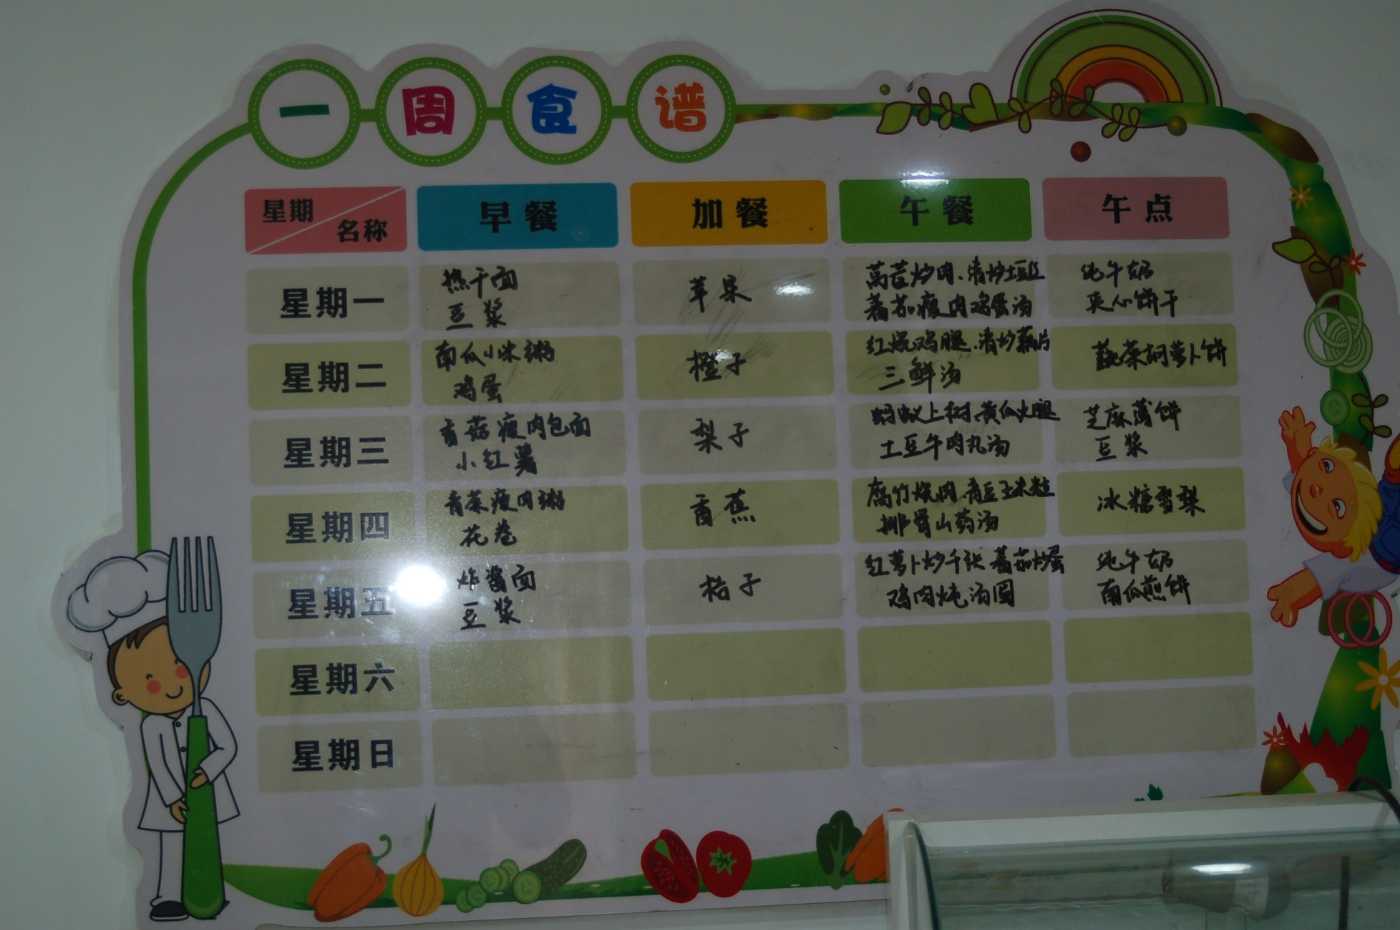 一周食谱
星期 名称 早餐 加餐 午餐 午点
星期一 热干面 豆浆 苹果 莴苣炒肉、清炒土豆丝 蕃茄瘦肉鸡蛋汤 纯牛奶 夹心饼干
星期二 南瓜小米粥 鸡蛋 橙子 红烧鸡腿、清炒藕片 三鲜汤 蔬菜胡萝卜饼
星期三 香菇瘦肉包面 小红薯 梨子 蚂蚁上树、黄瓜火腿 土豆牛肉丸汤 芝麻薄饼 豆浆
星期四 青菜瘦肉粥 花卷 香蕉 腐竹烧肉、青豆玉米粒 排骨山药汤 冰糖雪梨
星期五 炸酱面 豆浆 桔子 红萝卜炒千张、蕃茄炒蛋 鸡肉炖汤圆 纯牛奶 南瓜煎饼
星期六
星期日